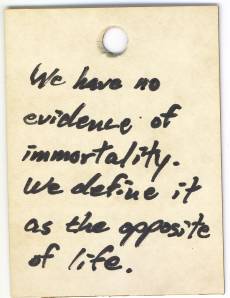 We have no
evidence of
immortality.
We define it
as the opposite
of life.